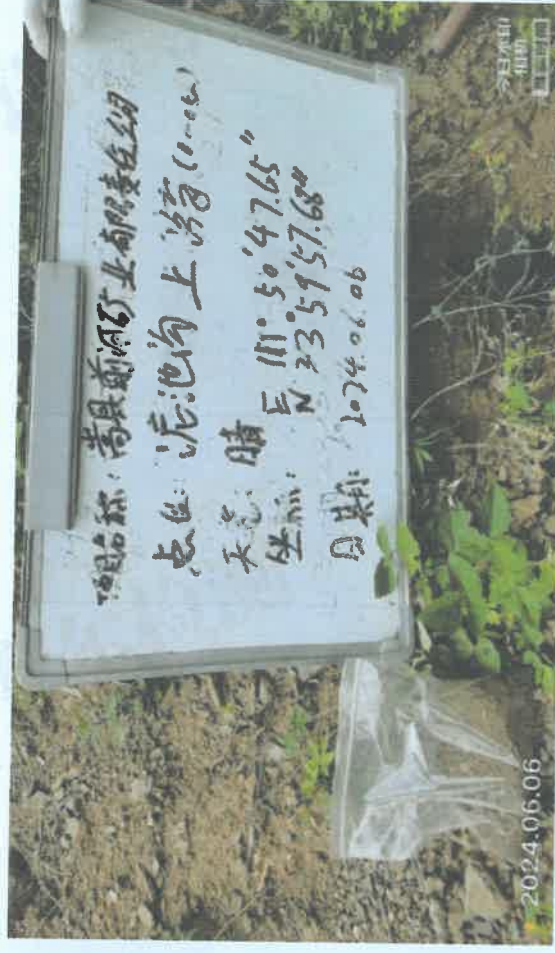 项目名称：嵩县前河矿业有限责任公司
点位：泥池沟上游(0-0.5m)
天气：晴
坐标：E 111°50′47.65″
N 33°59′57.68″
日期：2024.06.06
2024.06.06
今日水印
相机